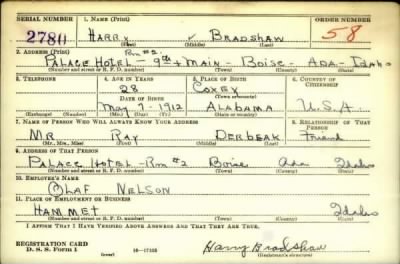 SERIAL NUMBER 1. NAME (Print) ORDER NUMBER
2780 HARRY BRADSHAW 58
(First) (Middle) (Last)
2. ADDRESS (Print) Rm #2.
PALACE HOTEL - 9th + MAIN - BOISE - ADA - IDAHO
(Number and street or R. F. D. number) (Town) (County) (State)
3. TELEPHONE 4. AGE IN YEARS 5. PLACE OF BIRTH 6. COUNTRY OF CITIZENSHIP
28 COXEY
DATE OF BIRTH (Town or county)
May 7. 1912 ALABAMA U.S.A.
(Exchange) (Number) (Mo.) (Day) (Yr.) (State or country)
7. NAME OF PERSON WHO WILL ALWAYS KNOW YOUR ADDRESS 8. RELATIONSHIP OF THAT PERSON
MR RAY DERBEAK Friend
(Mr., Mrs., Miss) (First) (Middle) (Last)
9. ADDRESS OF THAT PERSON
PALACE HOTEL - Rm #2 Boise Ada Idaho
(Number and street or R. F. D. number) (Town) (County) (State)
10. EMPLOYER'S NAME
OLAF NELSON
11. PLACE OF EMPLOYMENT OR BUSINESS
HAMMET Idaho
(Number and street or R. F. D. number) (Town) (County) (State)
I AFFIRM THAT I HAVE VERIFIED ABOVE ANSWERS AND THAT THEY ARE TRUE.
REGISTRATION CARD
D. S. S. Form 1 (over) 16-17105 Harry Bradshaw
(Registrant's signature)